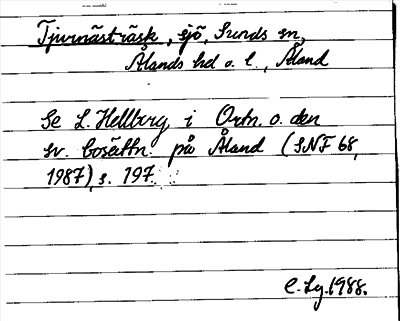 Tjurnästräsk, sjö, Sunds sn,
Ålands hd o. l., Åland
Se L. Hellberg i Ortn. o. den
sv. bosättn. på Åland (SNF 68,
1987), s. 197.
C. Lg. 1988.